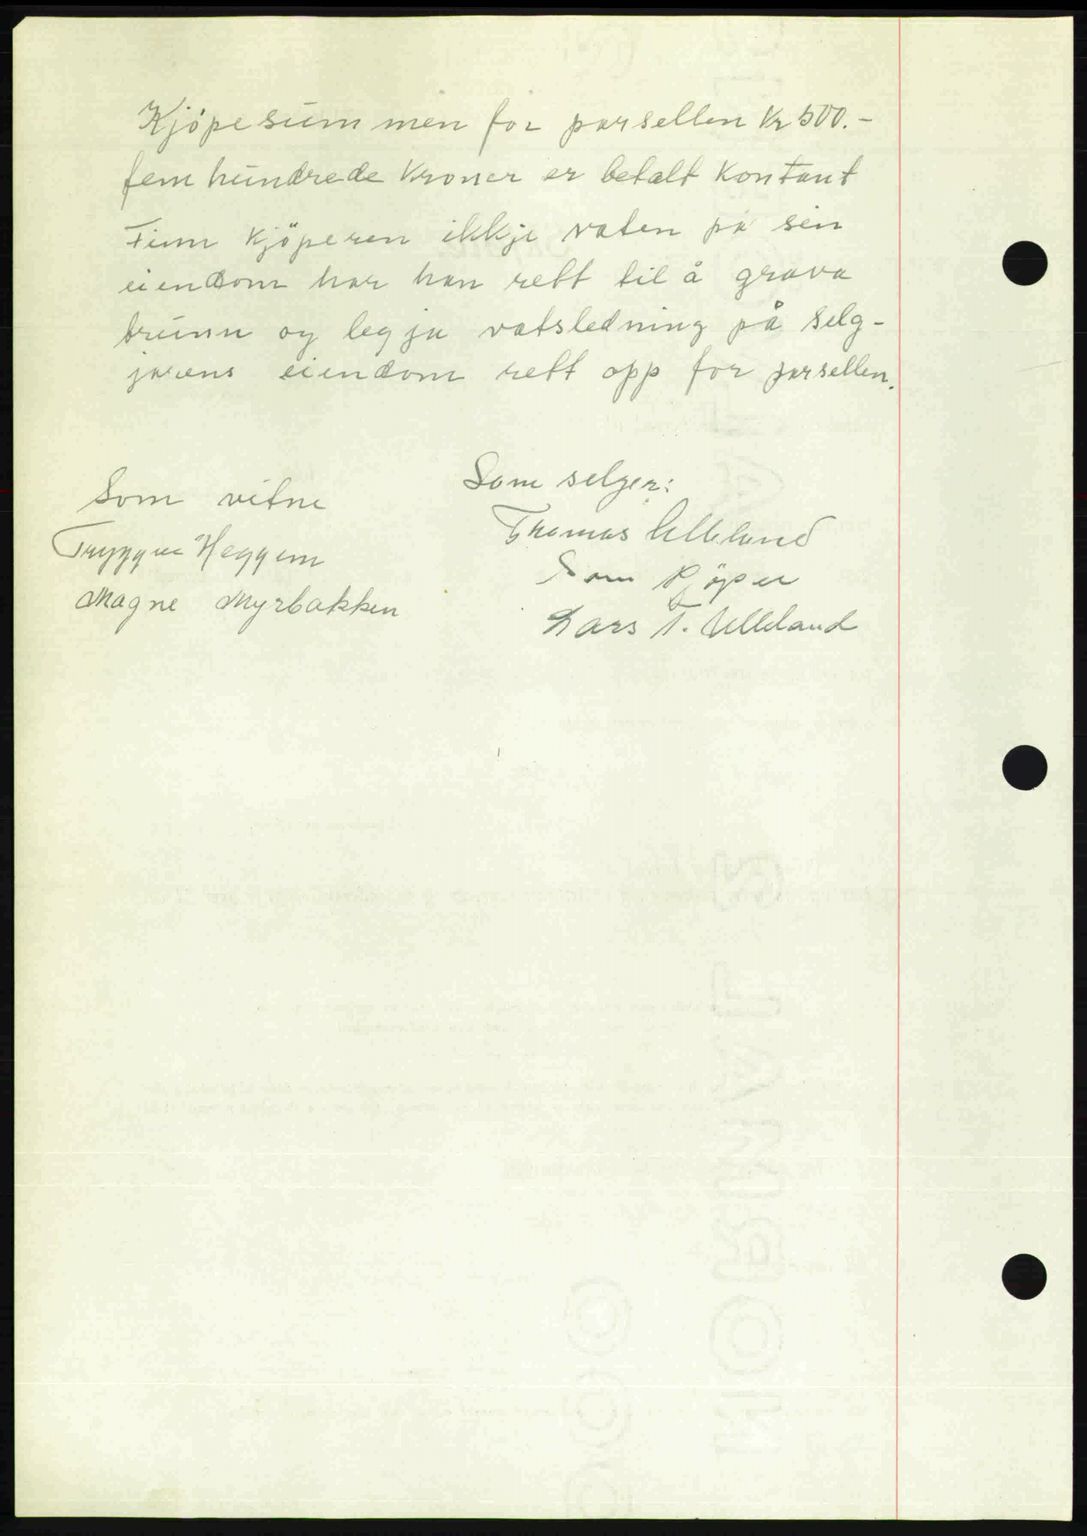 Kjöpesummen for parsellen Kr 500.-
fem hundrede Kroner er betalt Kontant
Finn kjöperen ikkje vaten på sin
eiendom har han rett til å grava
brunn og legja vatsledning på selg-
jarens eiendom rett opp for parsellen.
Som vitne
Tryggve Heggem
Magne Myrbakken
Som selger:
Thomas Ulleland
Som Kjöper
Lars T. Ulleland